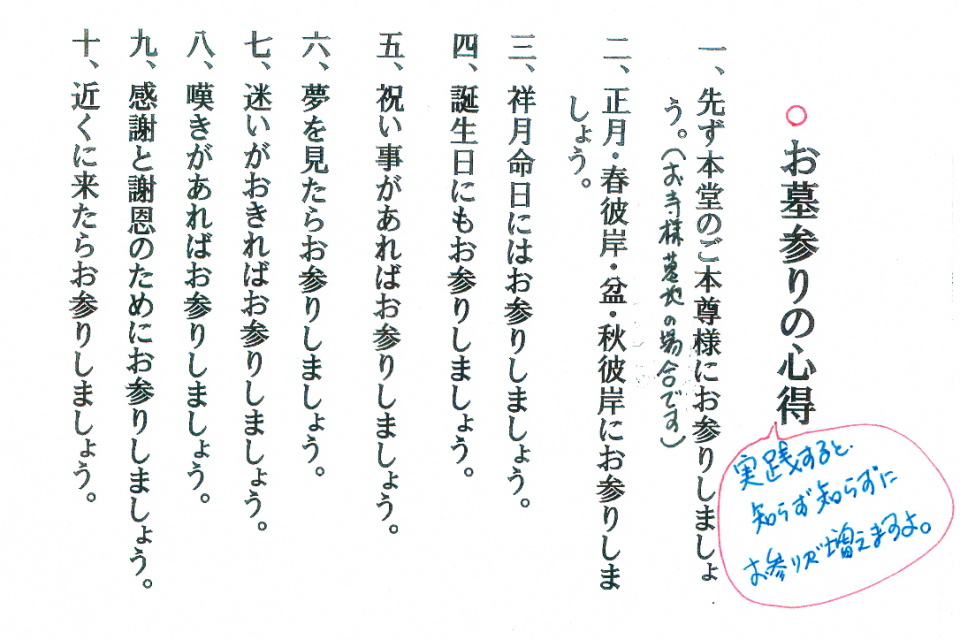 ○お墓参りの心得
実践すると、
知らず知らずに
お参りが増えますよ。
一、先ず本堂のご本尊様にお参りしましょ
う。(お寺様墓地の場合です)
二、正月・春彼岸・盆・秋彼岸にお参りしま
しょう。
三、祥月命日にはお参りしましょう。
四、誕生日にもお参りしましょう。
五、祝い事があればお参りしましょう。
六、夢を見たらお参りしましょう。
七、迷いがおきればお参りしましょう。
八、嘆きがあればお参りしましょう。
九、感謝と謝恩のためにお参りしましょう。
十、近くに来たらお参りしましょう。